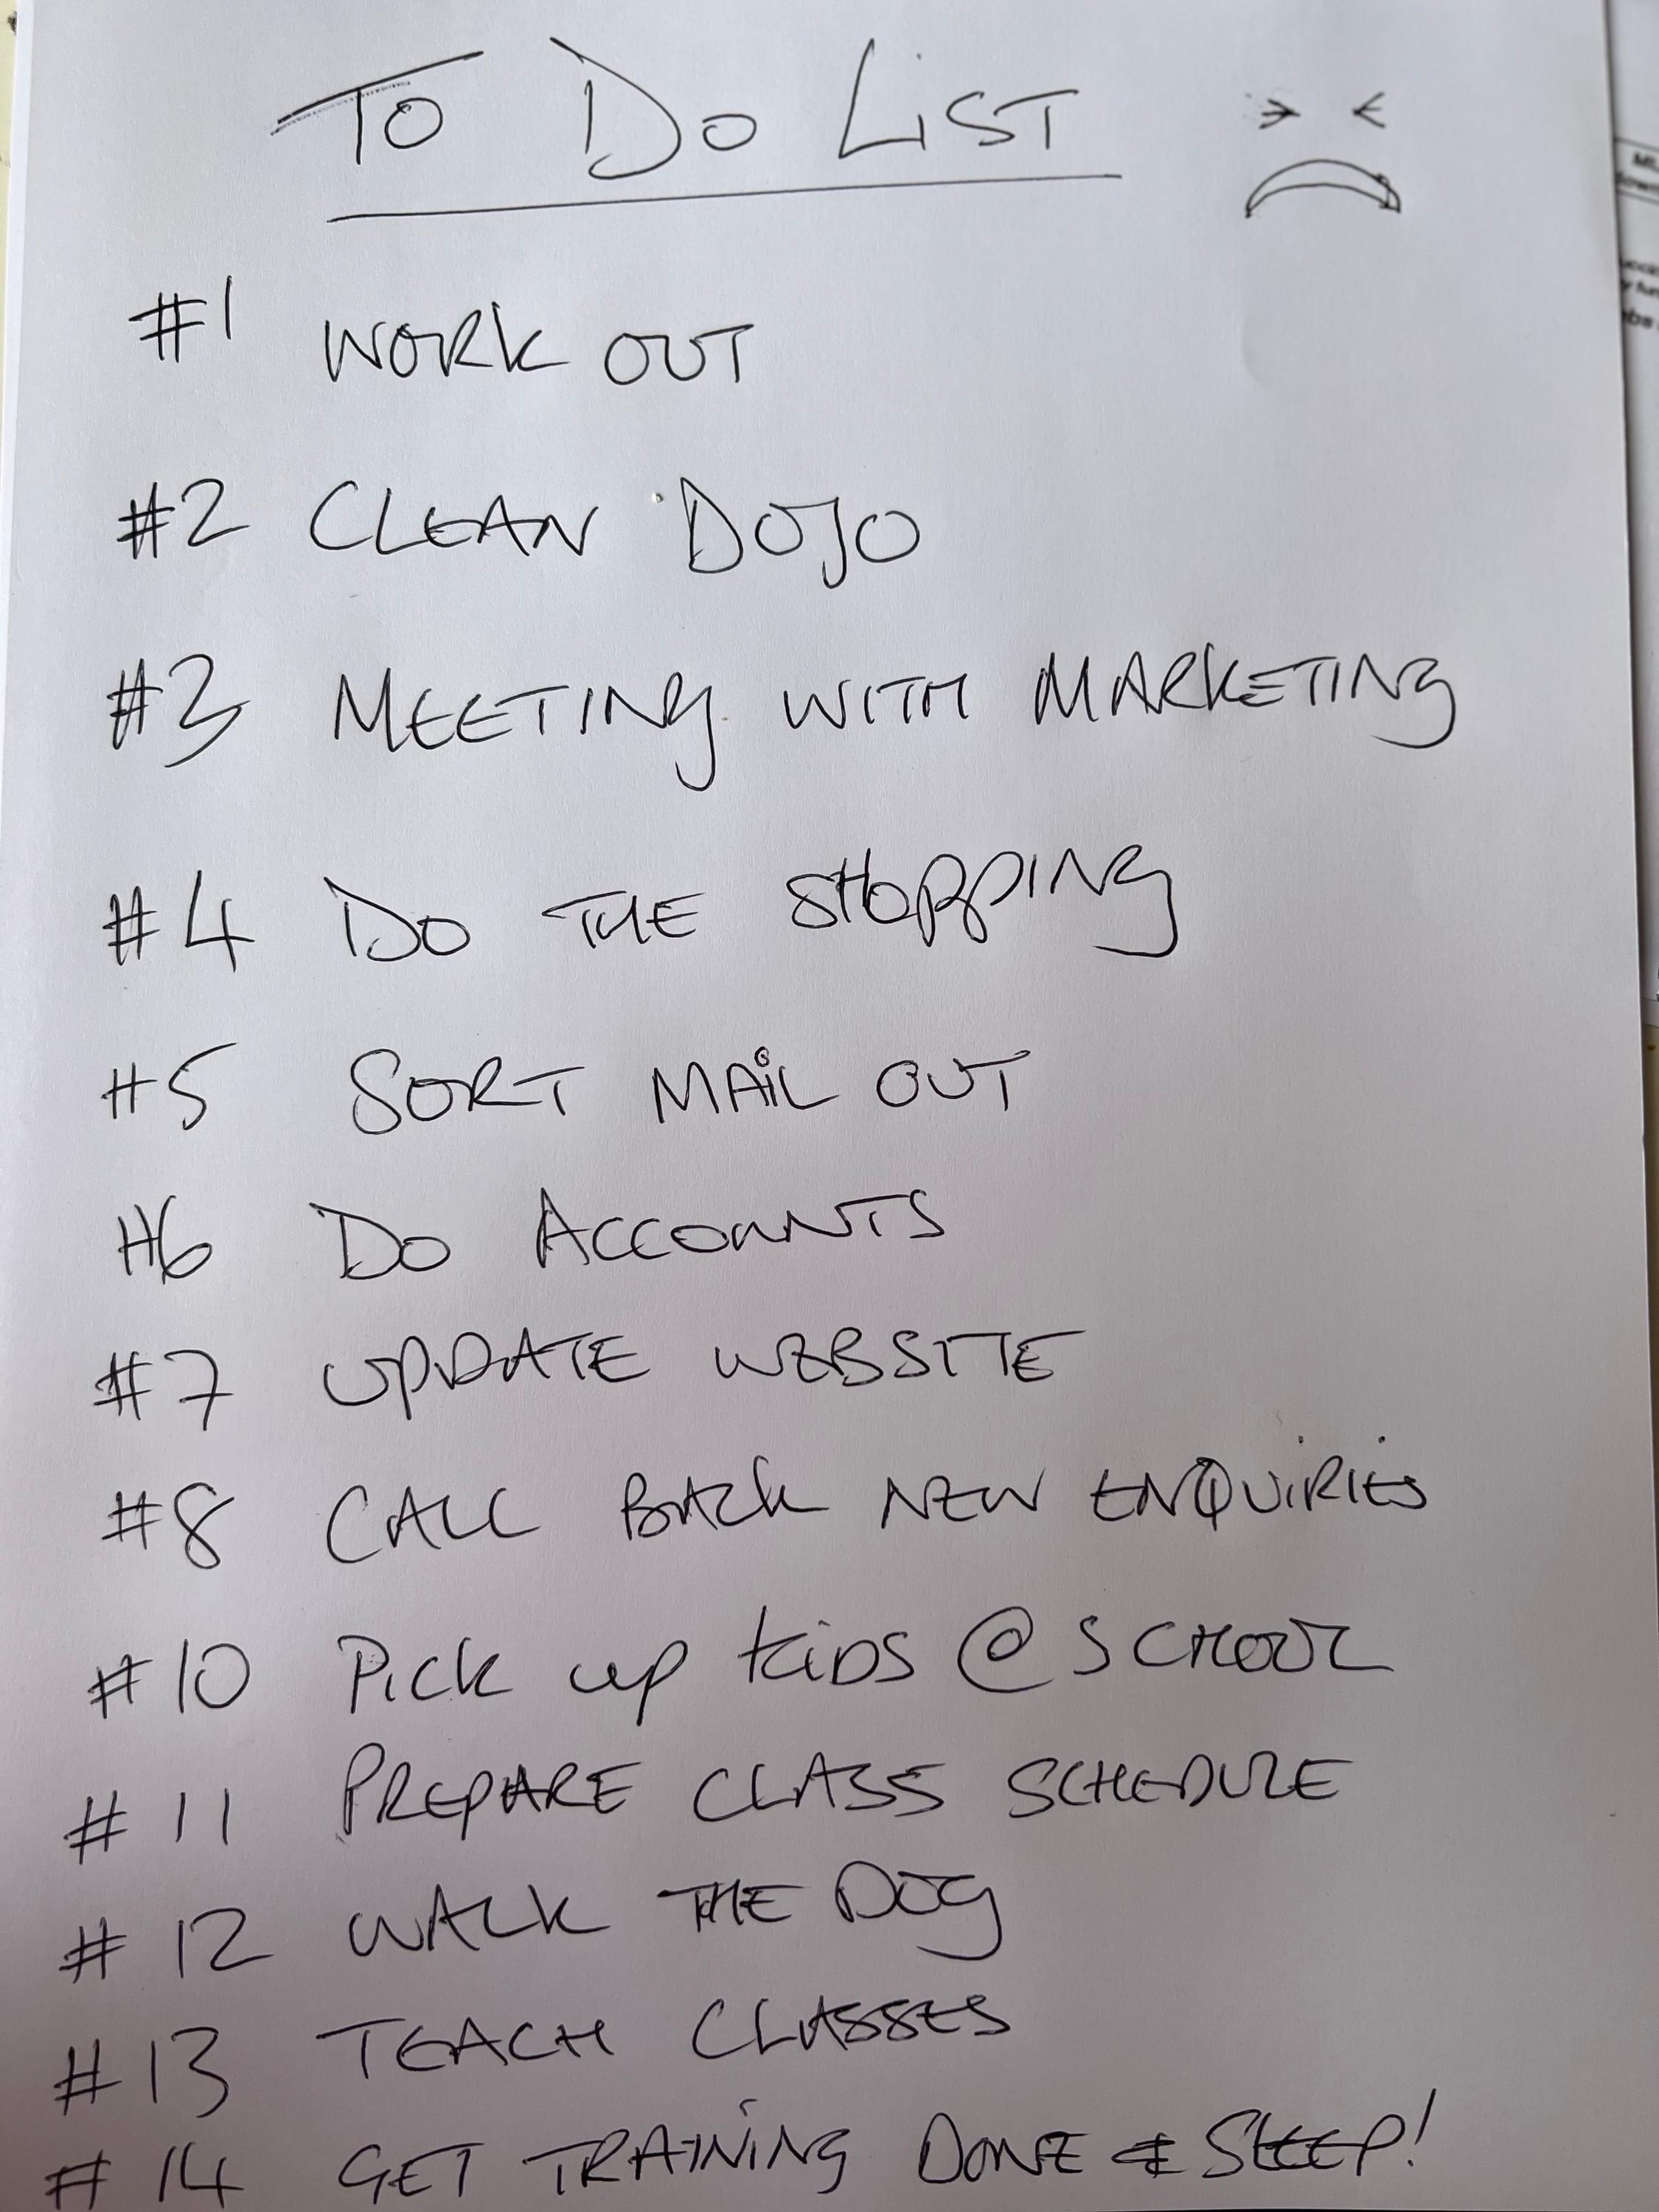 To Do LiST
#1 WORK OUT
#2 CLEAN DOJO
#3 MEETING WITH MARKETING
#4 Do THE SHOPPING
#5 SORT MAiL OUT
#6 Do ACCOUNTS
#7 UPDATE WEBSITE
#8 CALL BACK NEW ENQUiRiES
#10 Pick up kids @ SCHOOL
#11 PREPARE CLASS SCHEDULE
#12 WALK THE DOG
#13 TEACH CLASSES
#14 GET TRAiNiNG DONE & SLEEP!